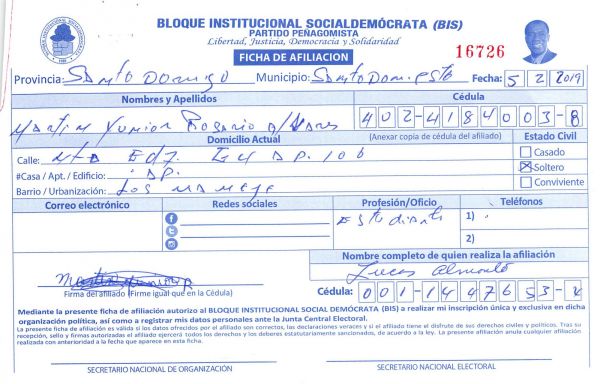 BLOQUE INSTITUCIONAL SOCIALDEMÓCRATA (BIS)
PARTIDO PEÑAGOMISTA
Libertad, Justicia, Democracia y Solidaridad
FICHA DE AFILIACION
16726
Provincia: Santo Domingo Municipio: Santo Dom. Este Fecha: 5 2 2019
Nombres y Apellidos Cédula
Martin Yunior Rosario 402-4184003-8
Domicilio Actual (Anexar copia de cédula del afiliado) Estado Civil
Calle: Edf. AP. 106
Casado
#Casa / Apt. / Edificio: AP.
Soltero
Barrio / Urbanización: Los
Conviviente
Correo electrónico Redes sociales Profesión/Oficio Teléfonos
Estudiante 1)
2)
Nombre completo de quien realiza la afiliación
Lucas Almonte
Firma del afiliado (Firme igual que en la Cédula)
Cédula: 001-1447653-
Mediante la presente ficha de afiliación autorizo al BLOQUE INSTITUCIONAL SOCIAL DEMÓCRATA (BIS) a realizar mi inscripción única y exclusiva en dicha
organización política, así como a registrar mis datos personales ante la Junta Central Electoral.
La presente ficha de afiliación es válida si los datos ofrecidos por el afiliado son correctos, las declaraciones veraces y si el afiliado tiene el disfrute de sus derechos civiles y políticos. Tras su
recepción, sello y firmas autorizadas el afiliado ejercerá todos los derechos y los deberes estatutariamente sancionados, de acuerdo a la ley. La presente afiliación anula cualquier afiliación
realizada con anterioridad a la fecha que aparece en esta ficha.
SECRETARIO NACIONAL DE ORGANIZACIÓN SECRETARIO NACIONAL ELECTORAL